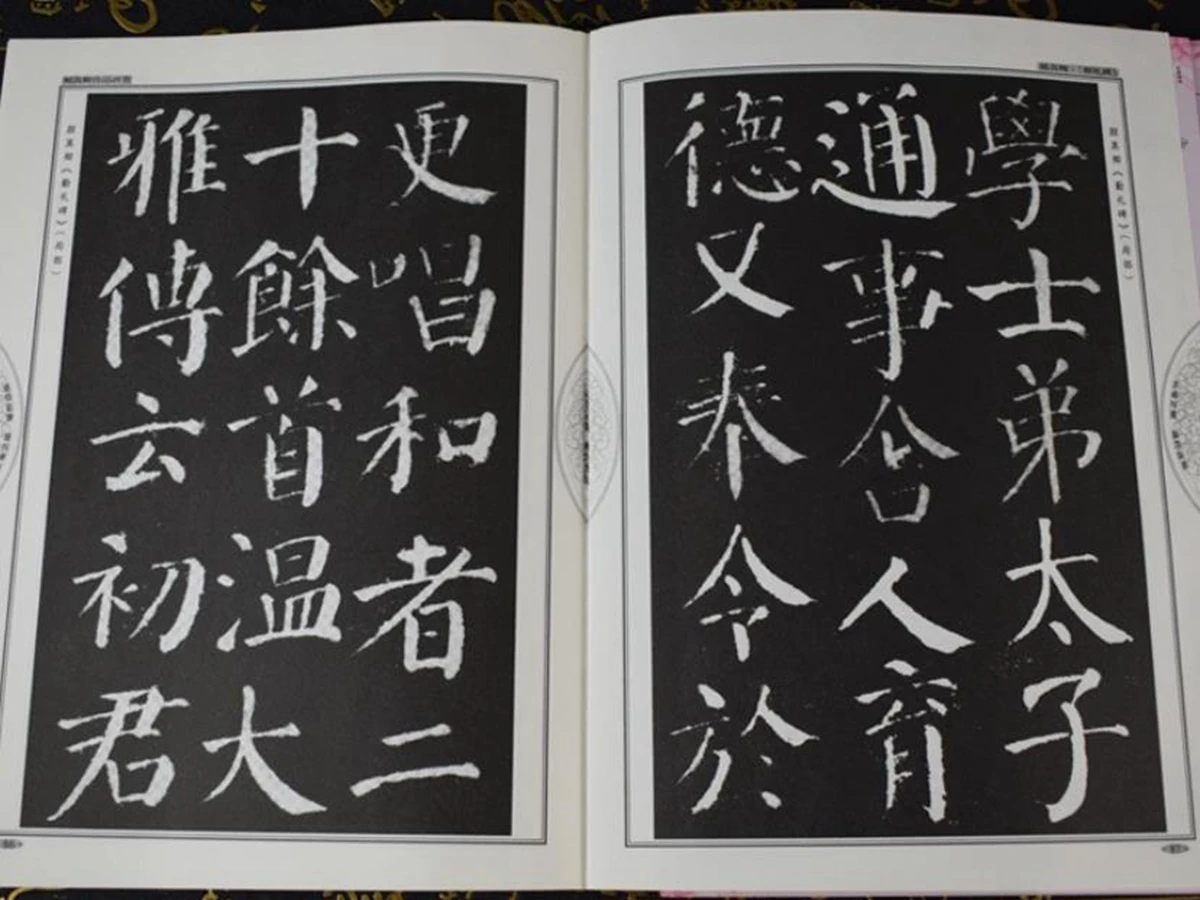 颜真卿《勤礼碑》(局部)
更唱和者二
十餘首温大
雅傳云初君
86
颜真卿《勤礼碑》(局部)
學士弟太子
通事舍人育
德又奉令於
87